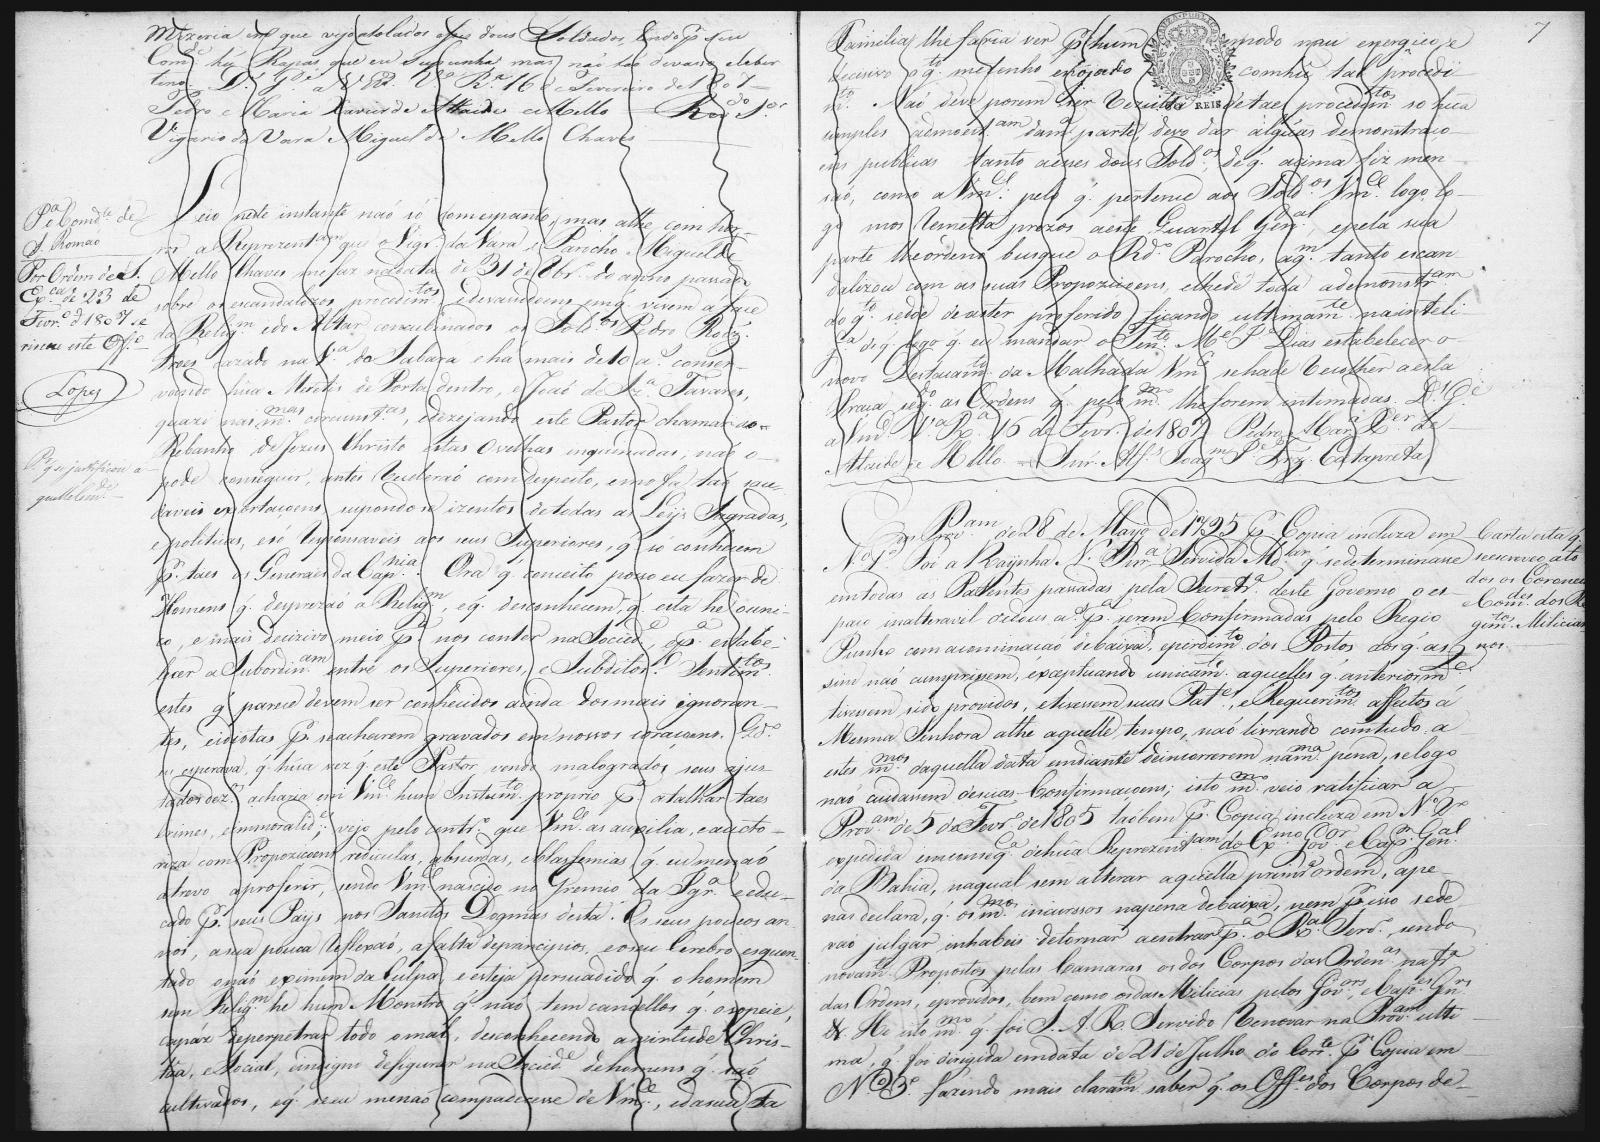 Mizeria em que vejo atolados esses dous Soldados, sendo p.ª seu
Com.de hú Rapaz que eu Supunha mas não tão devasso e liber
tino. D.s G.de a V. R. V.ª R.ª 16 de Fevereiro de 1807
Pedro e Maria Xavier de Ataide e Mello — R.do S.or
Vigario da Vara Miguel de Mello Chaves
P.ª o Com.de de
S. Romão
Por Ordem de S.
Ex.ca de 23 de
Fevr.o d 1807 se
riscou este Off.o
Lopes
P. q. se justificou a-
quelle Com.de
Leio neste instante naó só com espanto, mas athe com hor-
ror a Reprezent.am que o Vigr.o da Vara, e Parocho Miguel de
Mello Chaves me faz na data de 31 de Xbr.o do anno passado
sobre os escandalozos procedim.tos, e devacidoens em q. vivem á face
da Relig.m e do Altar concubinados os Sold.os Pedro Roiz.
Froes cazado na V.ª do Sabara e há mais de 10 a.s conser-
vando húa Meretris de Porta dentro, e Joaó de Sz.ª Tavares,
quazi nas m.mas circunst.as, e dezejando este Pastor chamar ao
Rebanho de Jezus Christo estas Ovelhas enganadas, naó o
pode conseguir, antes receberaó com despeito, e mofa taó sau-
daveis exortaçoens, supondo-se izentos de todas as Leijs Sagradas,
e politicas, e só responsaveis aos seus Superiores, q. só conhecem
p.r taes os Generaes da Cap.nia. Ora q. conceito posso eu fazer de
Homens q. desprezaó a Relig.m, e q. desconhecem, q. esta he o uni-
co, e mais decizivo meio p.ª nos conter na Socied.e, e p.ª estabe-
lecer a Subordin.am entre os Superiores, e Subditos? Sentim.tos
estes q. parece devem ser conhecidos ainda dos mais ignoran-
tes, e idiotas p.r se acharem gravados em nossos coraçoens. Q.do
eu esperava, q. húa vez q. este Pastor vendo malogrados seus ajus-
tados dez.os acharia em Vm.ce hum Instrum.to proprio p.ª atalhar taes
crimes, e immoralid.es; vejo pelo contr.o que Vm.ce as auxilia, e aucto-
riza com Propoziçoens rediculas, absurdas, e blasfemias q. eu me naó
atrevo a proferir, sendo Vm.ce nascido no Gremio da Igr.ª e edu-
cado p.r seus Pays nos Santos Dogmas desta. Os seus poucos an
nos, a sua pouca reflexaó, a falta de principios, e o seu Cerebro esquen
tado o naó eximem da Culpa, e esteja persuadido q. o homem
sem Relig.m he hum Monstro q. naó tem cancellos q. o sopeie,
capáz de perpetrar todo o mal, desconhecendo a virtude Chris-
táa, e Social, e indigno de figurar na Socied.e de homens q. saó
cultivados, e q. se eu me naó compadecesse de Vm.ce, e da sua Fa
7
Familia, lhe faria ver p.r hum modo mais energico, e
decisivo o q.to me tenho enojado com hú tal procedi-
m.to. Naó deve porem ser Vezulta de taes procedim.tos so húa
simples admoest.am da m.ª parte, devo dar algúas demonstraço-
ens publicas tanto a esses dous Sold.os, de q. acima fiz men
saó, como a Vm.ce: pelo q. pertence aos Sold.os Vm.ce logo, lo-
go mos remetta prezos a este Quartel Gen.al e pela sua
parte lhe ordeno busque o R.do Parocho, a q.m tanto escan
dalizou com as suas Propoziçoens, e lhe dê toda a demonstr.am
do q.to se doe de as ter proferido ficando ultimam.te na inteli-
g.ca de q. logo q. eu mandar o Ten.te M.el J.e Dias estabelecer o
novo Destacam.to da Malháda Vm.ce se ha de recolher a esta
Praça seg.do as Ordens q. pelo m.mo lhe forem intimadas. D.s G.e
a Vm.ce V.ª R.ª 16 de Fevr.o de 1807 Pedro Mar.ª X.er de
Ataide e Mello = Snr. Alf.s Joaq.m J.e Frz. Catapreta
Por Prov.am de 28 de Mayo de 1795 p.r Copia incluza em
N.o 1.o Foi a Raynha N. Snr.ª Servida M.dar q. se determinasse
em todas as Patentes passadas pela Secretr.ª deste Governo o es-
paço inalteravel de deus a.s p.ª serem Confirmadas pelo Regio
Punho com acominacaó de baixa, e perdim.to dos Postos aos q. as-
sim naó cumprissem, exceptuando unicam.te aquelles q. anteriorm.te
tivessem sido providos, e tivessem suas Pat.es, e Requerim.tos affectos á
Mesma Senhora athe aquelle tempo, naó livrando comtudo a
estes m.mos daquella data em diante de incorrerem na m.ma pena, se logo
naó cuidassem de suas Confirmaçoens; isto m.mo veio ratificar a
Prov.am de 5 de Fevr.o de 1805 tãobem p.r Copia incluza em N.o 2.o
expedida em conseq.ª de húa Reprezent.am do Ex.mo Gov.or e Cap.m Gen.al
da Bahia, na qual sem alterar aquella prim.ª ordem, ape-
nas declara, q. os m.mos incursos na pena de baixa, nem p.r isso se de-
vaó julgar inhabeis de tornar a entrar p.ª o R.al Serv.o, sendo
novam.te Propostos pelas Camaras os dos Corpos das Orden.as na f.ª
das Ordens, e providos, bem como os das Milicias pelos Gov.ors, e Cap.es Gn.rs
&. He isto m.mo q. foi S. A. R. Servido renovar na Prov.am ulti-
ma, q. foi dirigida em data de 21 de Julho do Corr.te p.r Copia em
N.o 3.o fazendo mais claram.te saber q. os Off.es dos Corpos de-
Carta esta q.
se escreveo a to
dos os Coroneis
e Com.des dos Re
gim.tos Milicia
nos.